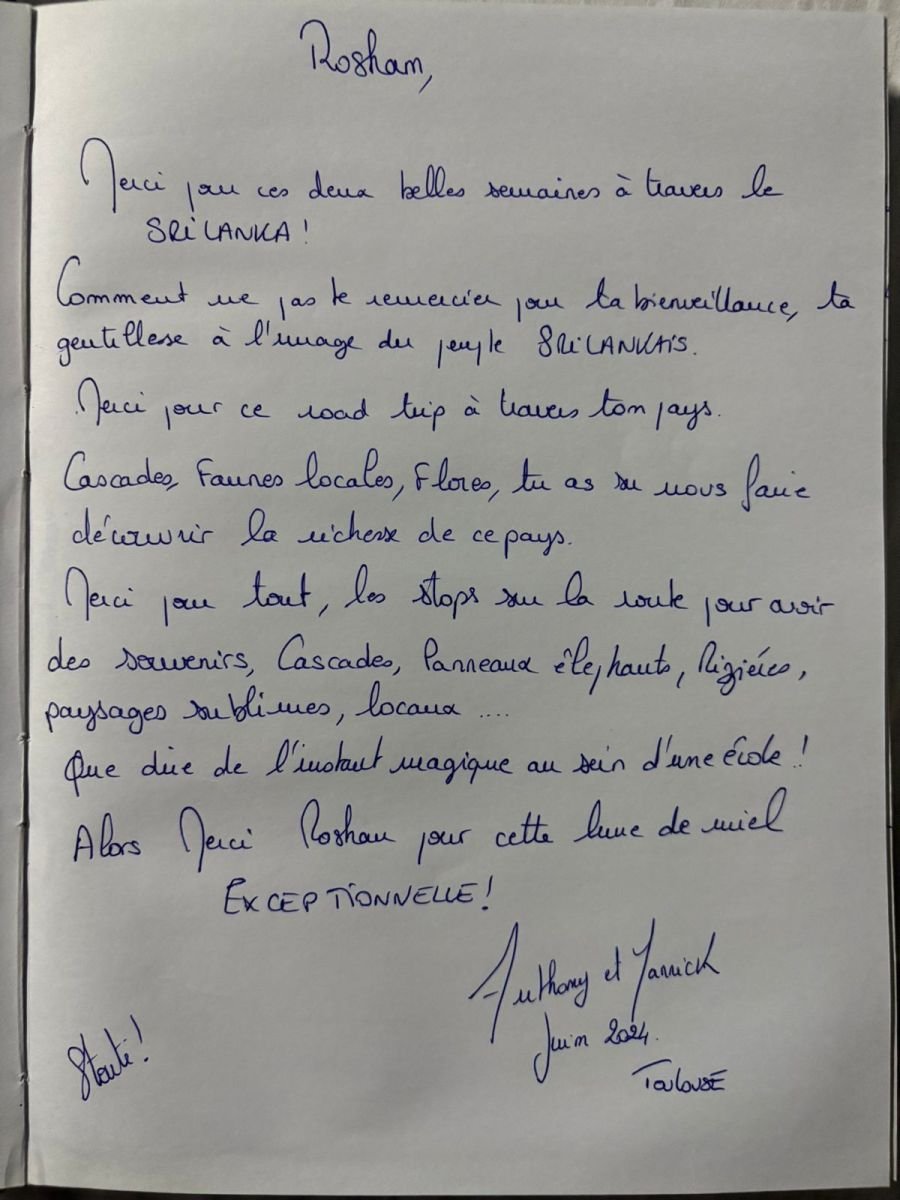 Roshan,
Merci pour ces deux belles semaines à travers le
SRI LANKA !
Comment ne pas te remercier pour ta bienveillance, ta
gentillesse à l'image du peuple SRI LANKAIS.
Merci pour ce road trip à travers ton pays.
Cascades, Faunes locales, Flores, tu as su nous faire
découvrir la richesse de ce pays.
Merci pour tout, les stops sur la route pour avoir
des souvenirs, Cascades, Panneaux élephants, Rizières,
paysages sublimes, locaux ....
Que dire de l'instant magique au sein d'une école !
Alors Merci Roshan pour cette lune de miel
EXCEPTIONNELLE !
Anthony et Yannick
Juin 2024.
Stouti !
Toulouse